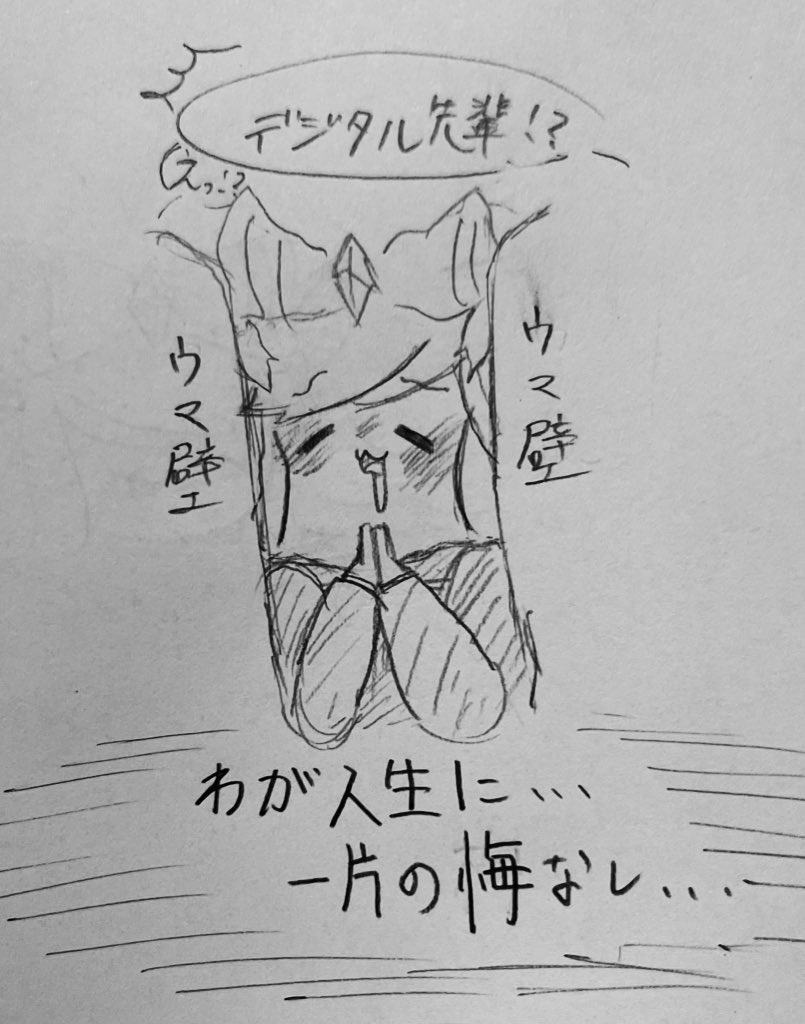 デジタル先輩!?
えっ!?
ウマ壁
ウマ壁
わが人生に...
一片の悔なし...